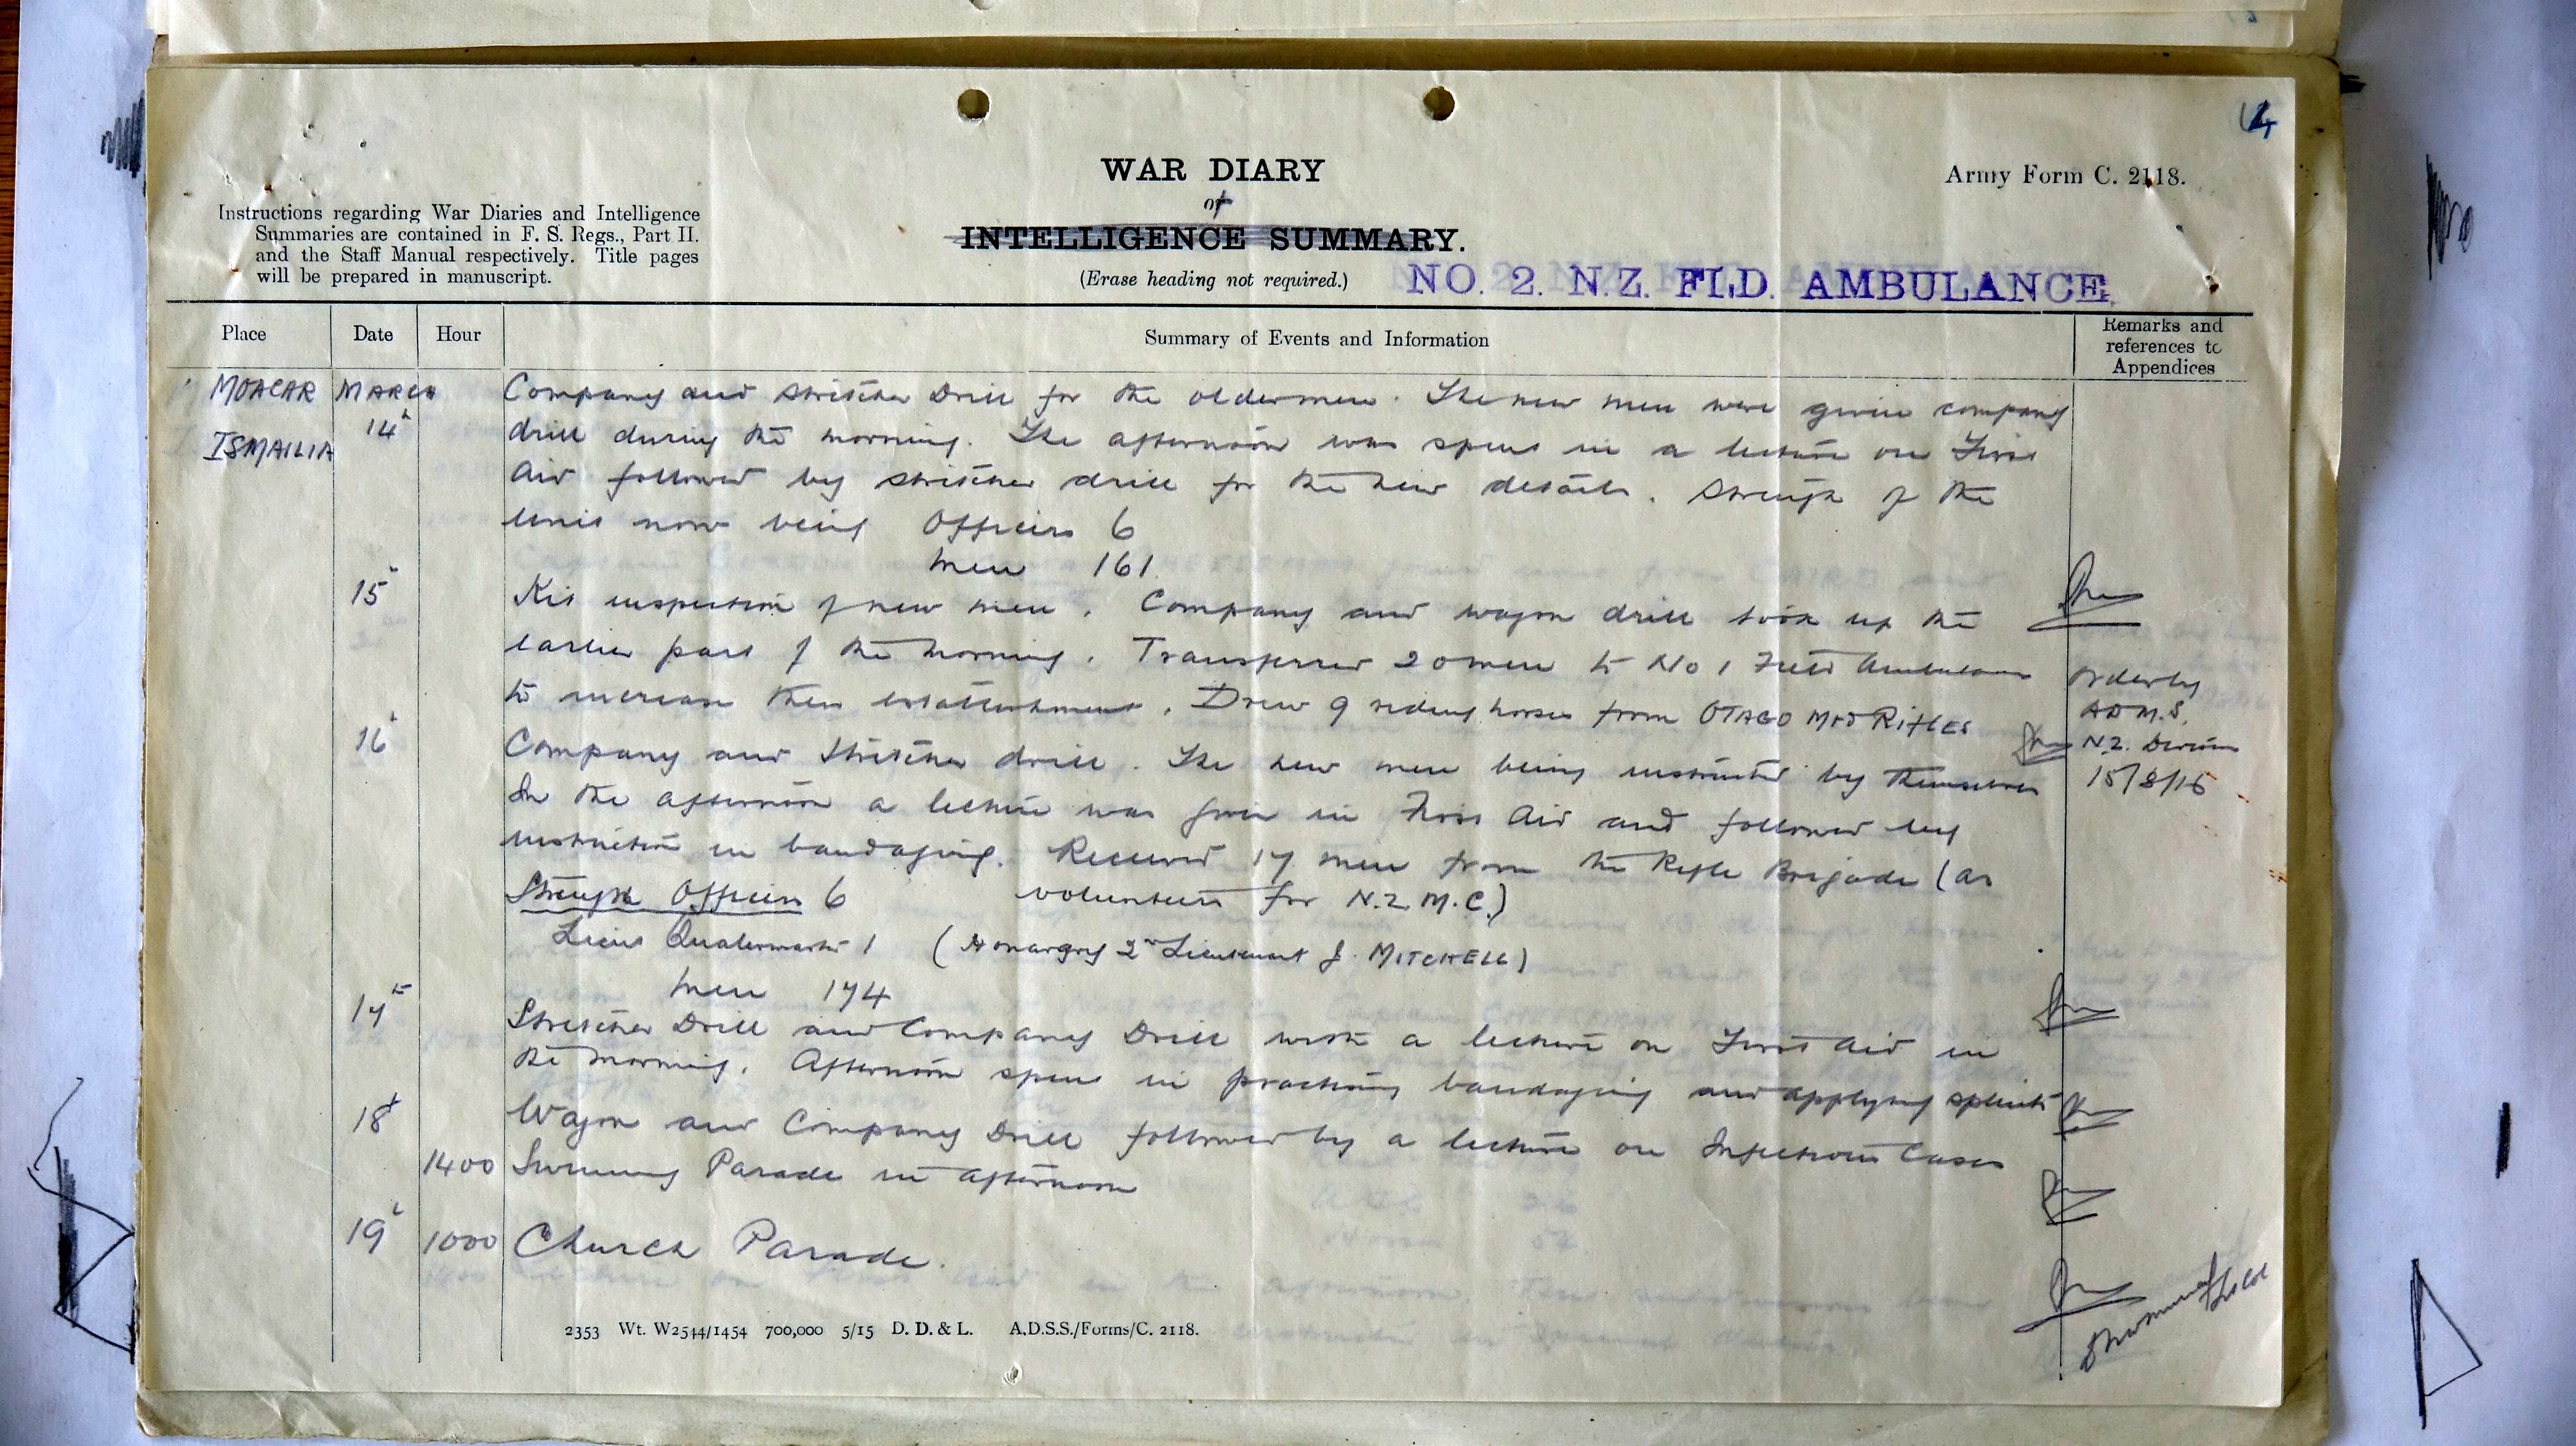 4
WAR DIARY
Army Form C. 2118.
or
INTELLIGENCE SUMMARY.
(Erase heading not required.)
Instructions regarding War Diaries and Intelligence
Summaries are contained in F. S. Regs., Part II.
and the Staff Manual respectively. Title pages
will be prepared in manuscript.
NO. 2. N.Z. FLD. AMBULANCE.
Place Date Hour Summary of Events and Information Remarks and
references to
Appendices
MOACAR MARCH Company and Stretcher Drill for the older men. The new men were given company
ISMAILIA 14th drill during the morning. The afternoon was spent in a lecture on First
Aid followed by stretcher drill for the new details. Strength of the
Unit now being Officers 6
Men 161
15th Kit inspection of new men. Company and wagon drill took up the
earlier part of the morning. Transferred 20 men to No 1 Field Ambulance
to increase their establishment. Drew 9 riding horses from OTAGO Mtd RIFLES
Order by
A.D.M.S.
N.Z. Division
15/3/16
16th Company and Stretcher drill. The new men being instructed by themselves
In the afternoon a lecture was given in First Aid and followed by
instruction in bandaging. Received 17 men from the Rifle Brigade (as
volunteers for N.Z.M.C.)
Strength Officers 6
Lieut Quatermaster 1 (Honargry 2nd Lieutenant J. MITCHELL)
Men 174
17th Stretcher Drill and Company Drill with a lecture on First Aid in
the morning. Afternoon spent in practising bandaging and applying splints
18th Wagon and Company Drill followed by a lecture on Infectious Cases
1400 Swimming Parade in afternoon
19th 1000 Church Parade.
Lt Col
2353 Wt. W2544/1454 700,000 5/15 D. D. & L. A.D.S.S./Forms/C. 2118.